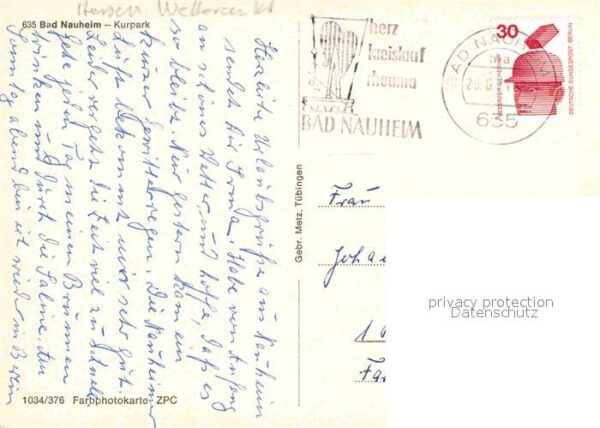 Hessen Wetterau Kt
635 Bad Nauheim – Kurpark
Herzliche Urlaubsgrüße aus Nauheim
sendet Dir Irma. Habe von Anfang
an schönes Wetter und hoffe, daß es
so bleibt. Nur gestern kam ein
kurzer Gewitterregen. Die Nauheimer
Luft bekommt mir sehr gut.
Leider vergeht die Zeit viel zu schnell.
Gehe jeden Tag meinen Brunnen
trinken und durch die Saline. Am
Sonntag abend bin ich wieder in Berlin
1034/376 Farbphotokarte ZPC
Gebr. Metz, Tübingen
herz
kreislauf
rheuma
BAD NAUHEIM
BAD NAUHEIM
635
30
DEUTSCHE BUNDESPOST BERLIN
Frau
Joha
1
privacy protection
Datenschutz